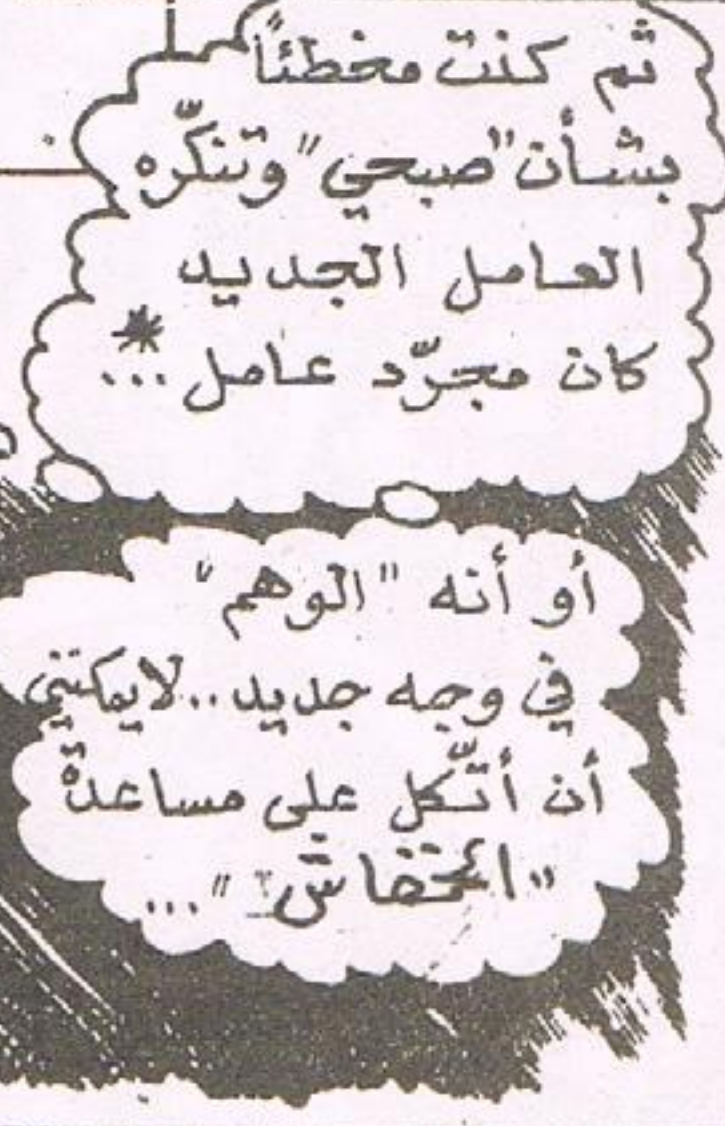 ثم كنت مخطئاً
بشأن "صبحي" وتنكّره
العامل الجديد
كان مجرّد عامل...*
أو أنه "الوهم"
في وجه جديد.. لايمكنني
أن أتّكل على مساعدة
"الخفاش"...